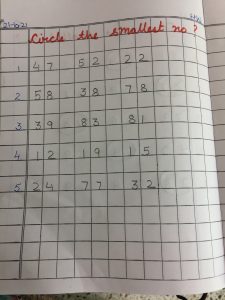 Circle the smallest no ?
1 47 52 22
2 58 38 78
3 39 83 81
4 12 19 15
5 24 77 32